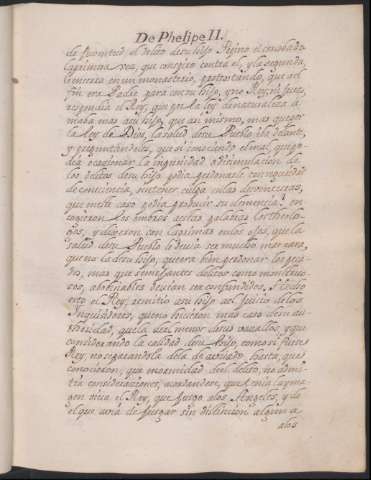 De Phelipe II.
de juventud el delito de su hijo Pepino el Jorobado
la primera vez, que conspiró contra el, y la segunda,
le encerro en un monasterio, protestando, que asi
fin era Padre para con su hijo, y no Rey, ni Juez,
respondia el Rey, que por la ley de naturaleza a
maba mas a su hijo, que asi mismo, mas que por
la Ley de Dios, la salud de su Pueblo iba delante,
y preguntandoles, que si conociendo el mal, que po
dia ocasionar la impunidad o disimulacion de
los delitos de su hijo podia perdonarle con seguridad
de conciencia, sin tener culpa en las
que en este caso podia producir su clemencia? en
cogieron los ombros a estas palabras los theolo
gos, y dixeron con lagrimas en los ojos, que la
salud de su Pueblo le devia ser mucho mas cara,
que no la de su hijo, que era bien perdonar los peca
dos, mas que semejantes delitos como monstruo
sos, abominables devian ser confundidos. Sobre
esto el Rey, remitio a su hijo al juicio de los
Inquisidores, que no hiciesen mas caso de su au
thoridad, que la del menor de sus vasallos, y que
considerando la calidad de su hijo, como si fuera
Rey, no separandola de la de acusado, hasta que
conociesen, que enormidad del delito, no admi
tia consideraciones, acordandose, que tenia la yma
gen viva el Rey, que juzgo a los Angeles, y de
el que avia de juzgar sin distincion alguna
alos